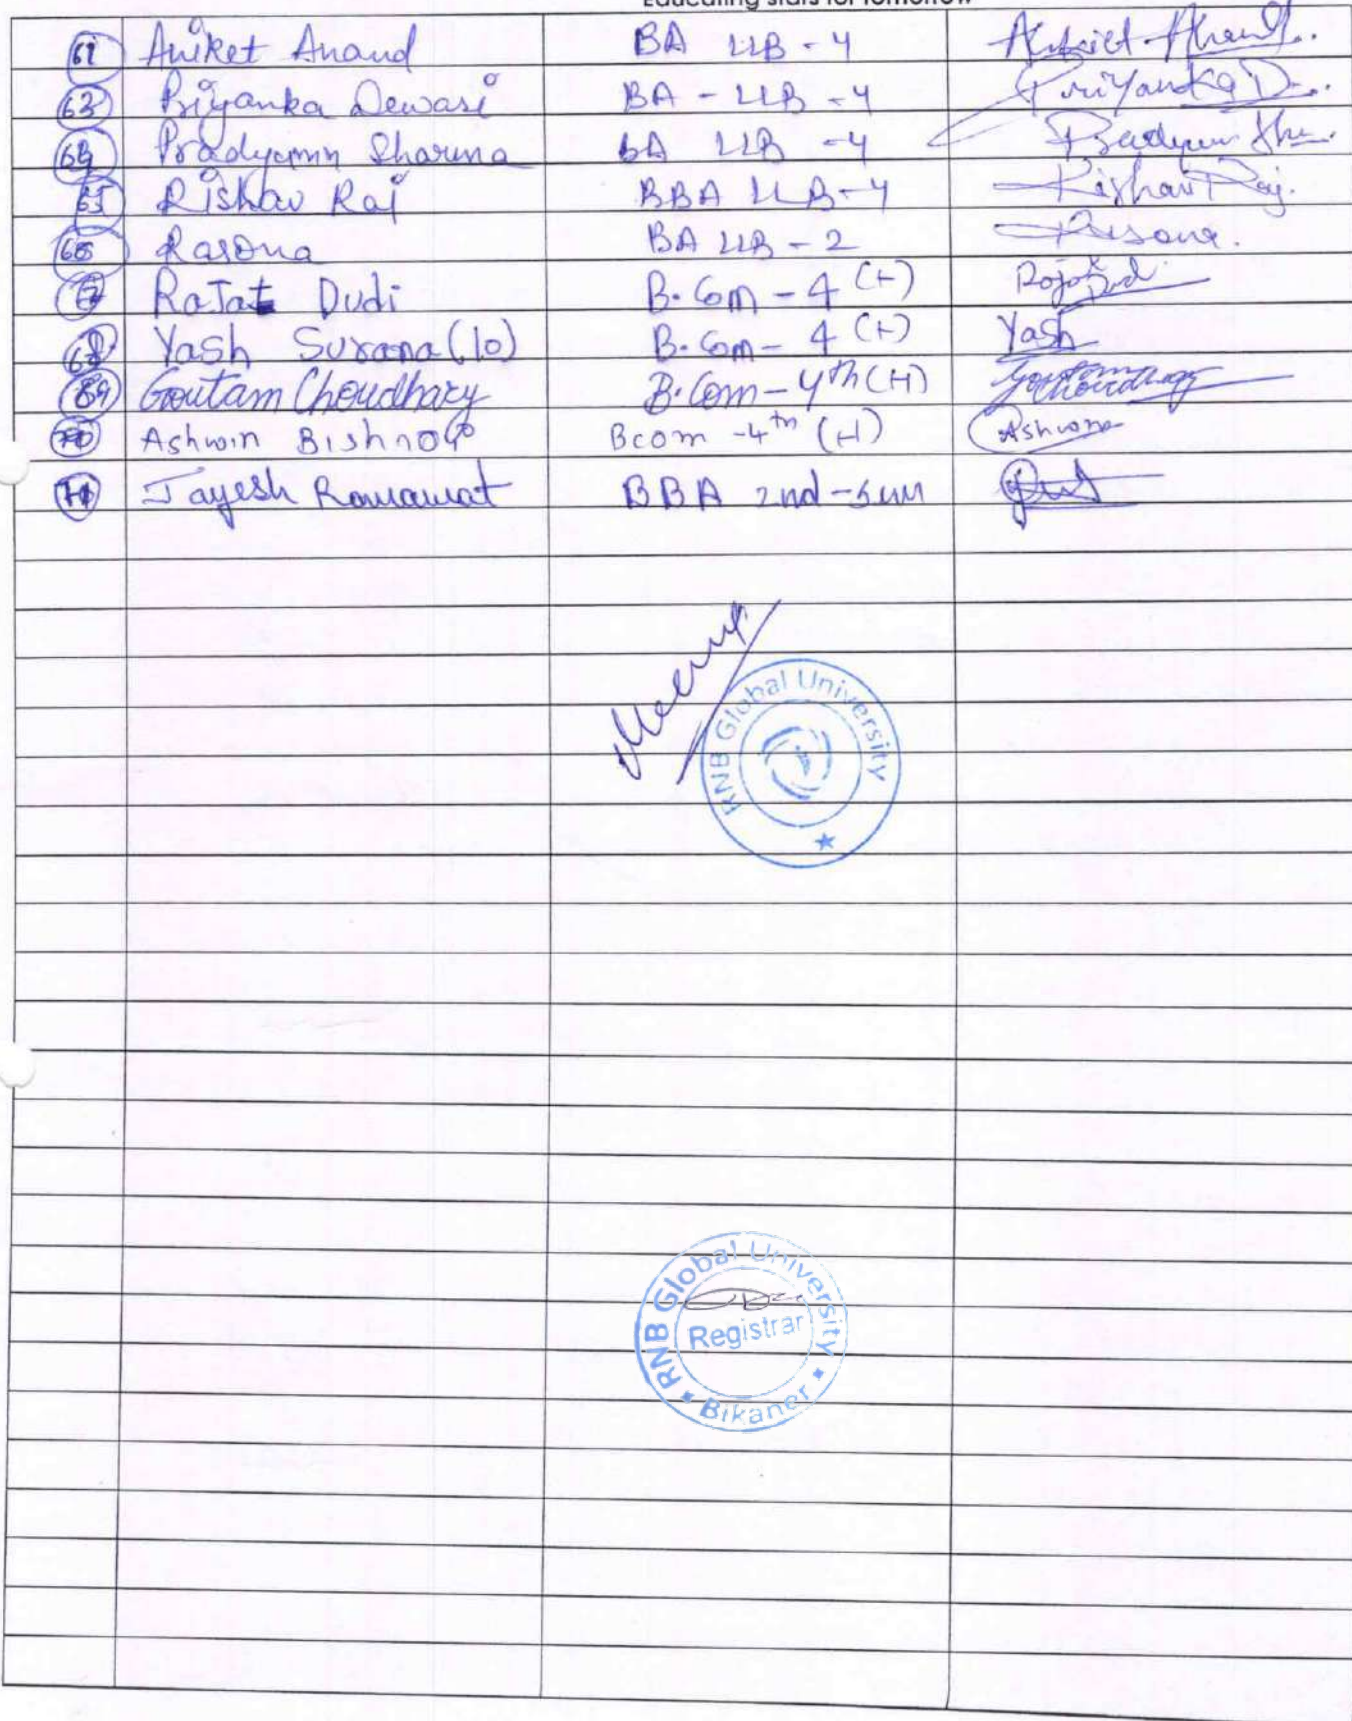 Educating stars for tomorrow
61 Aniket Anand BA LLB - 4 Aniket Anand.
63 Priyanka Dewasi BA - LLB - 4 Priyanka D
64 Pradyumn Sharma BA LLB - 4
65 Rishav Raj BBA LLB - 4 Rishav Raj.
66 Rasona BA LLB - 2 Rasona.
67 RaJat Dudi B.Com - 4 (H)
68 Yash Surana (10) B.Com - 4 (H) Yash
69 Goutam Choudhary B.Com - 4th (H) Goutam Choudhary
70 Ashwin Bishnoi Bcom - 4th (H) Ashwin
71 Jayesh Ramawat BBA 2nd - sem
RNB Global University
RNB Global University
Registrar
Bikaner